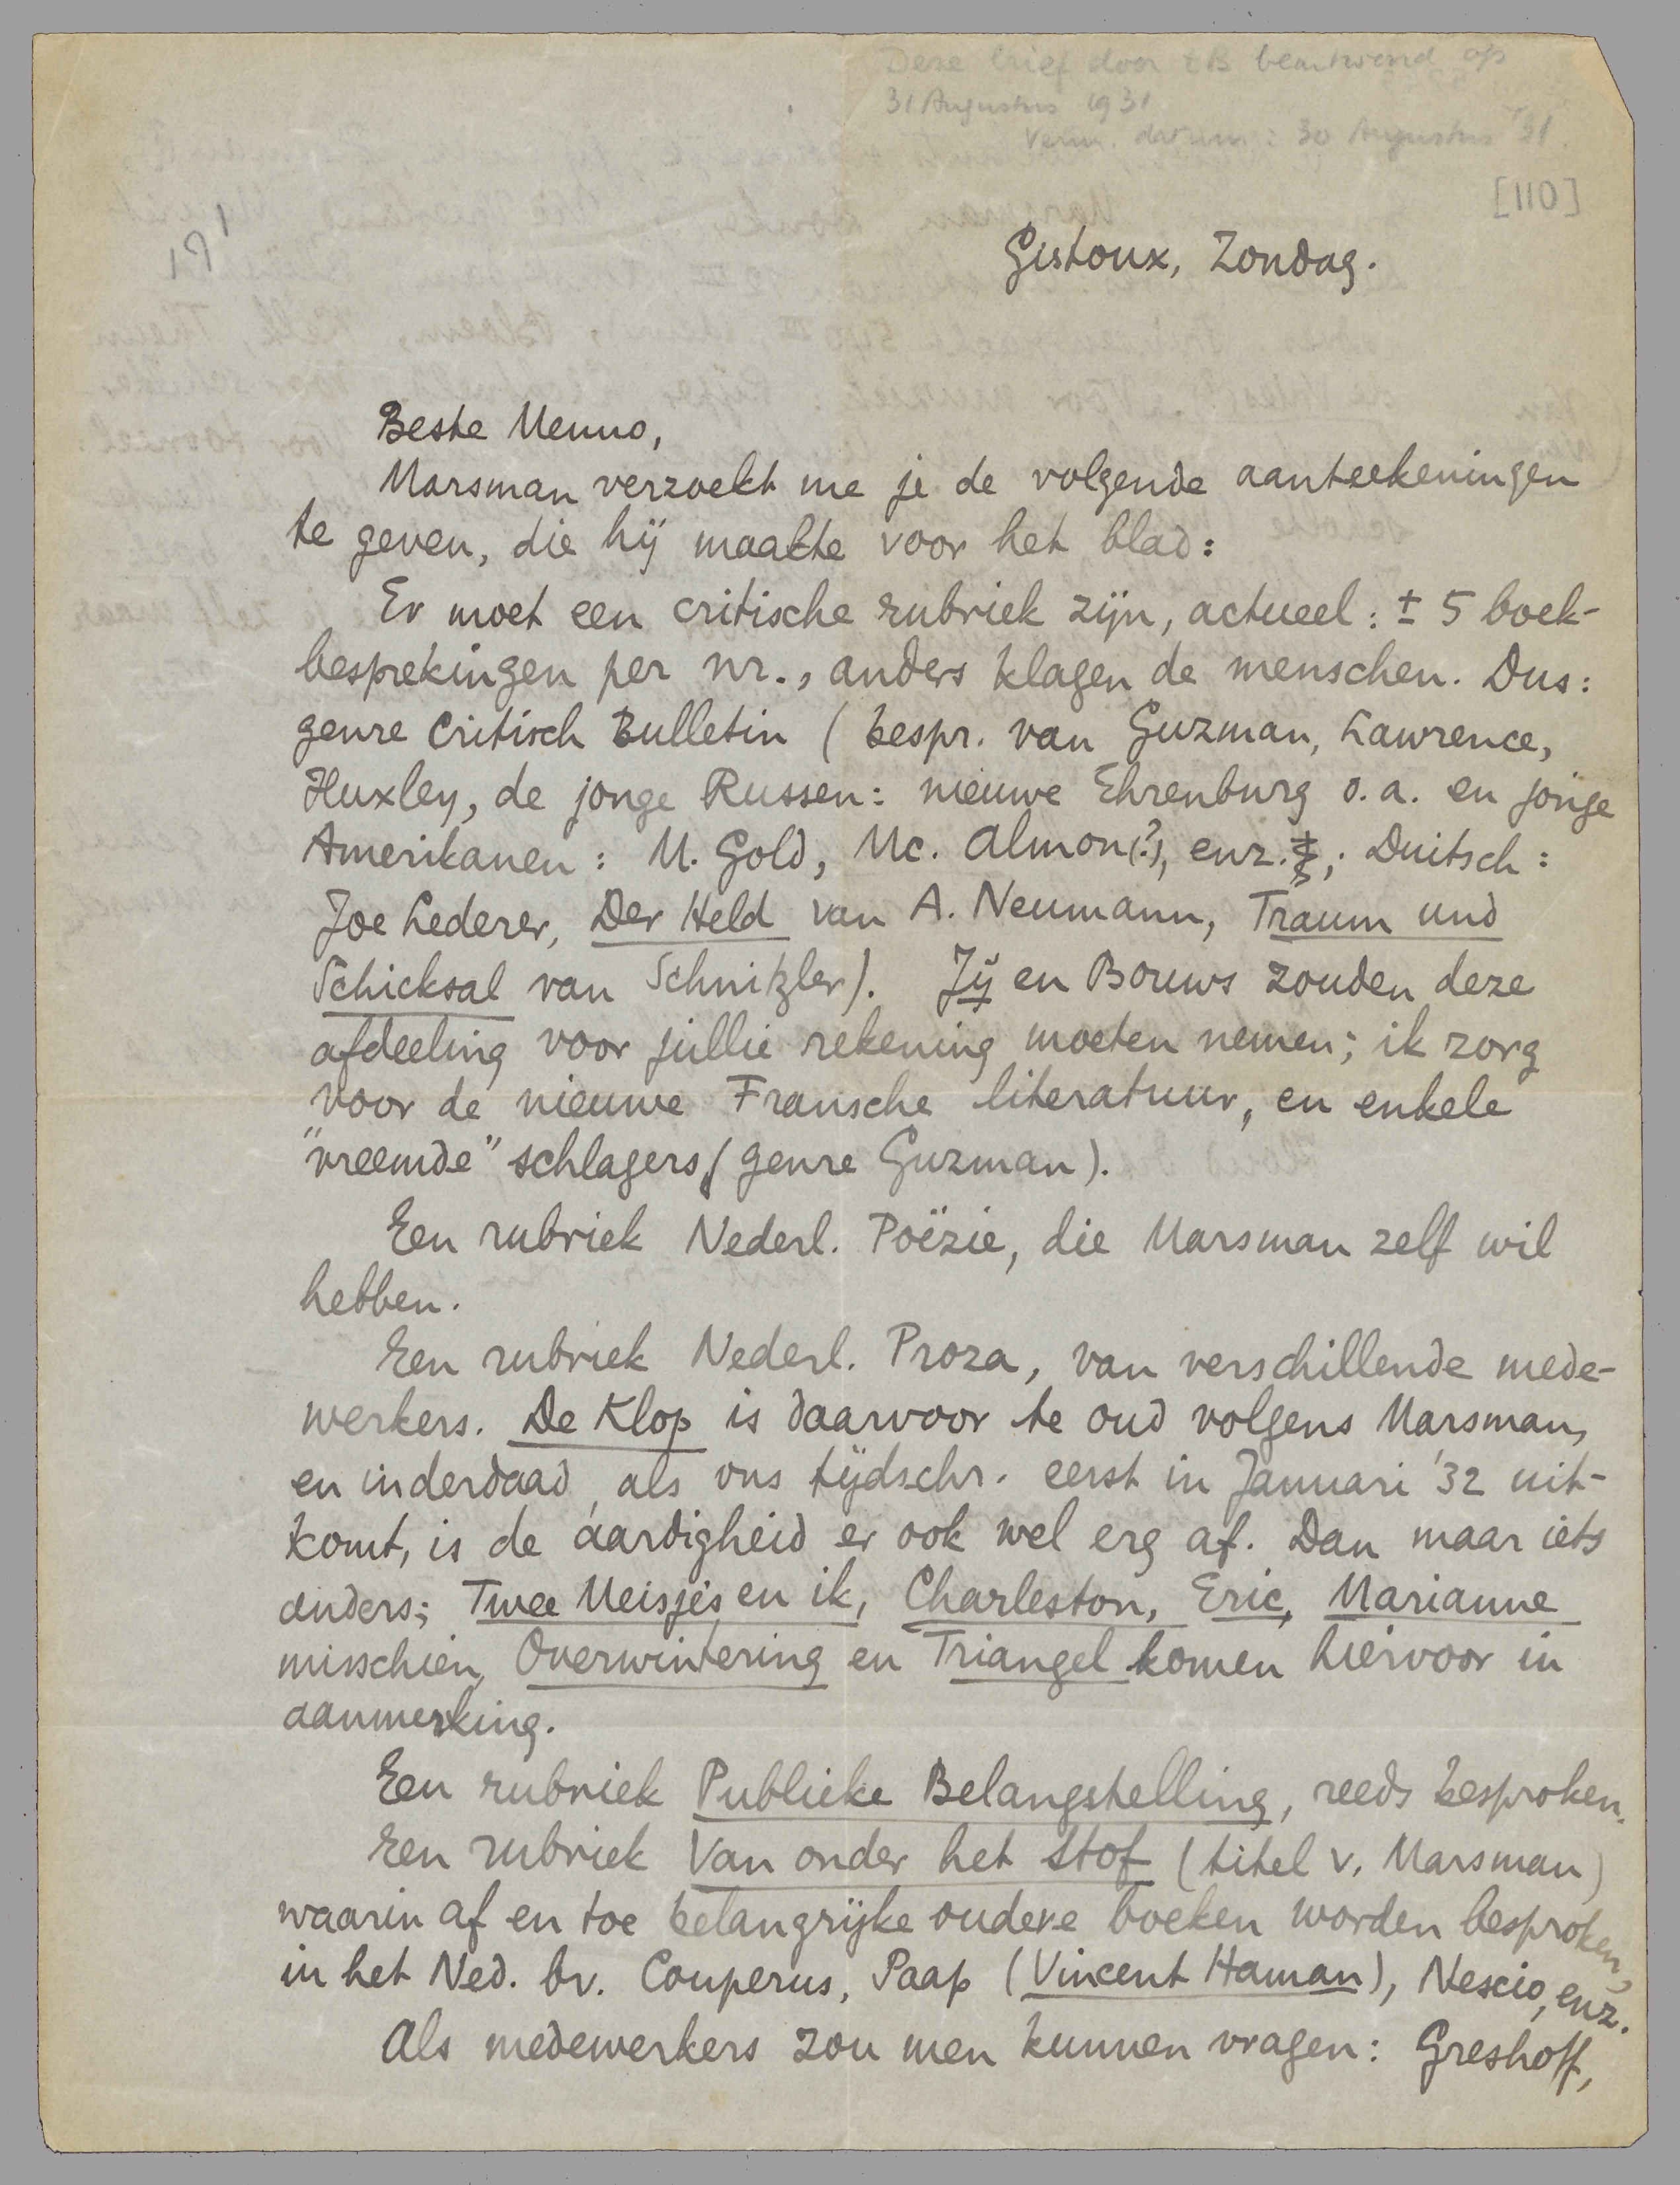 Deze brief door tB beantwoord op
31 Augustus 1931
Verm. datum: 30 Augustus '31.
[110]
Gistoux, Zondag.
Beste Menno,
Marsman verzoekt me je de volgende aanteekeningen
te geven, die hij maakte voor het blad:
Er moet een critische rubriek zijn, actueel: ± 5 boek-
besprekingen per nr., anders klagen de menschen. Dus:
genre Critisch Bulletin (bespr. van Guzman, Lawrence,
Huxley, de jonge Russen: nieuwe Ehrenburg o.a. en jonge
Amerikanen: M. Gold, Mc. Almon(?), enz.; Duitsch:
Joe Lederer, Der Held van A. Neumann, Traum und
Schicksal van Schnitzler). Jij en Bouws zouden deze
afdeeling voor jullie rekening moeten nemen; ik zorg
voor de nieuwe Fransche literatuur, en enkele
"vreemde" schlagers (genre Guzman).
Een rubriek Nederl. Poëzie, die Marsman zelf wil
hebben.
Een rubriek Nederl. Proza, van verschillende mede-
werkers. De Klop is daarvoor te oud volgens Marsman,
en inderdaad, als ons tijdschr. eerst in Januari '32 uit-
komt, is de aardigheid er ook wel erg af. Dan maar iets
anders; Twee Meisjes en ik, Charleston, Eric, Marianne
misschien, Overwintering en Triangel komen hiervoor in
aanmerking.
Een rubriek Publieke Belangstelling, reeds besproken.
Een rubriek Van onder het Stof (titel v. Marsman)
waarin af en toe belangrijke oudere boeken worden besproken,
in het Ned. bv. Couperus, Paap (Vincent Haman), Nescio, enz.
Als medewerkers zou men kunnen vragen: Greshoff,